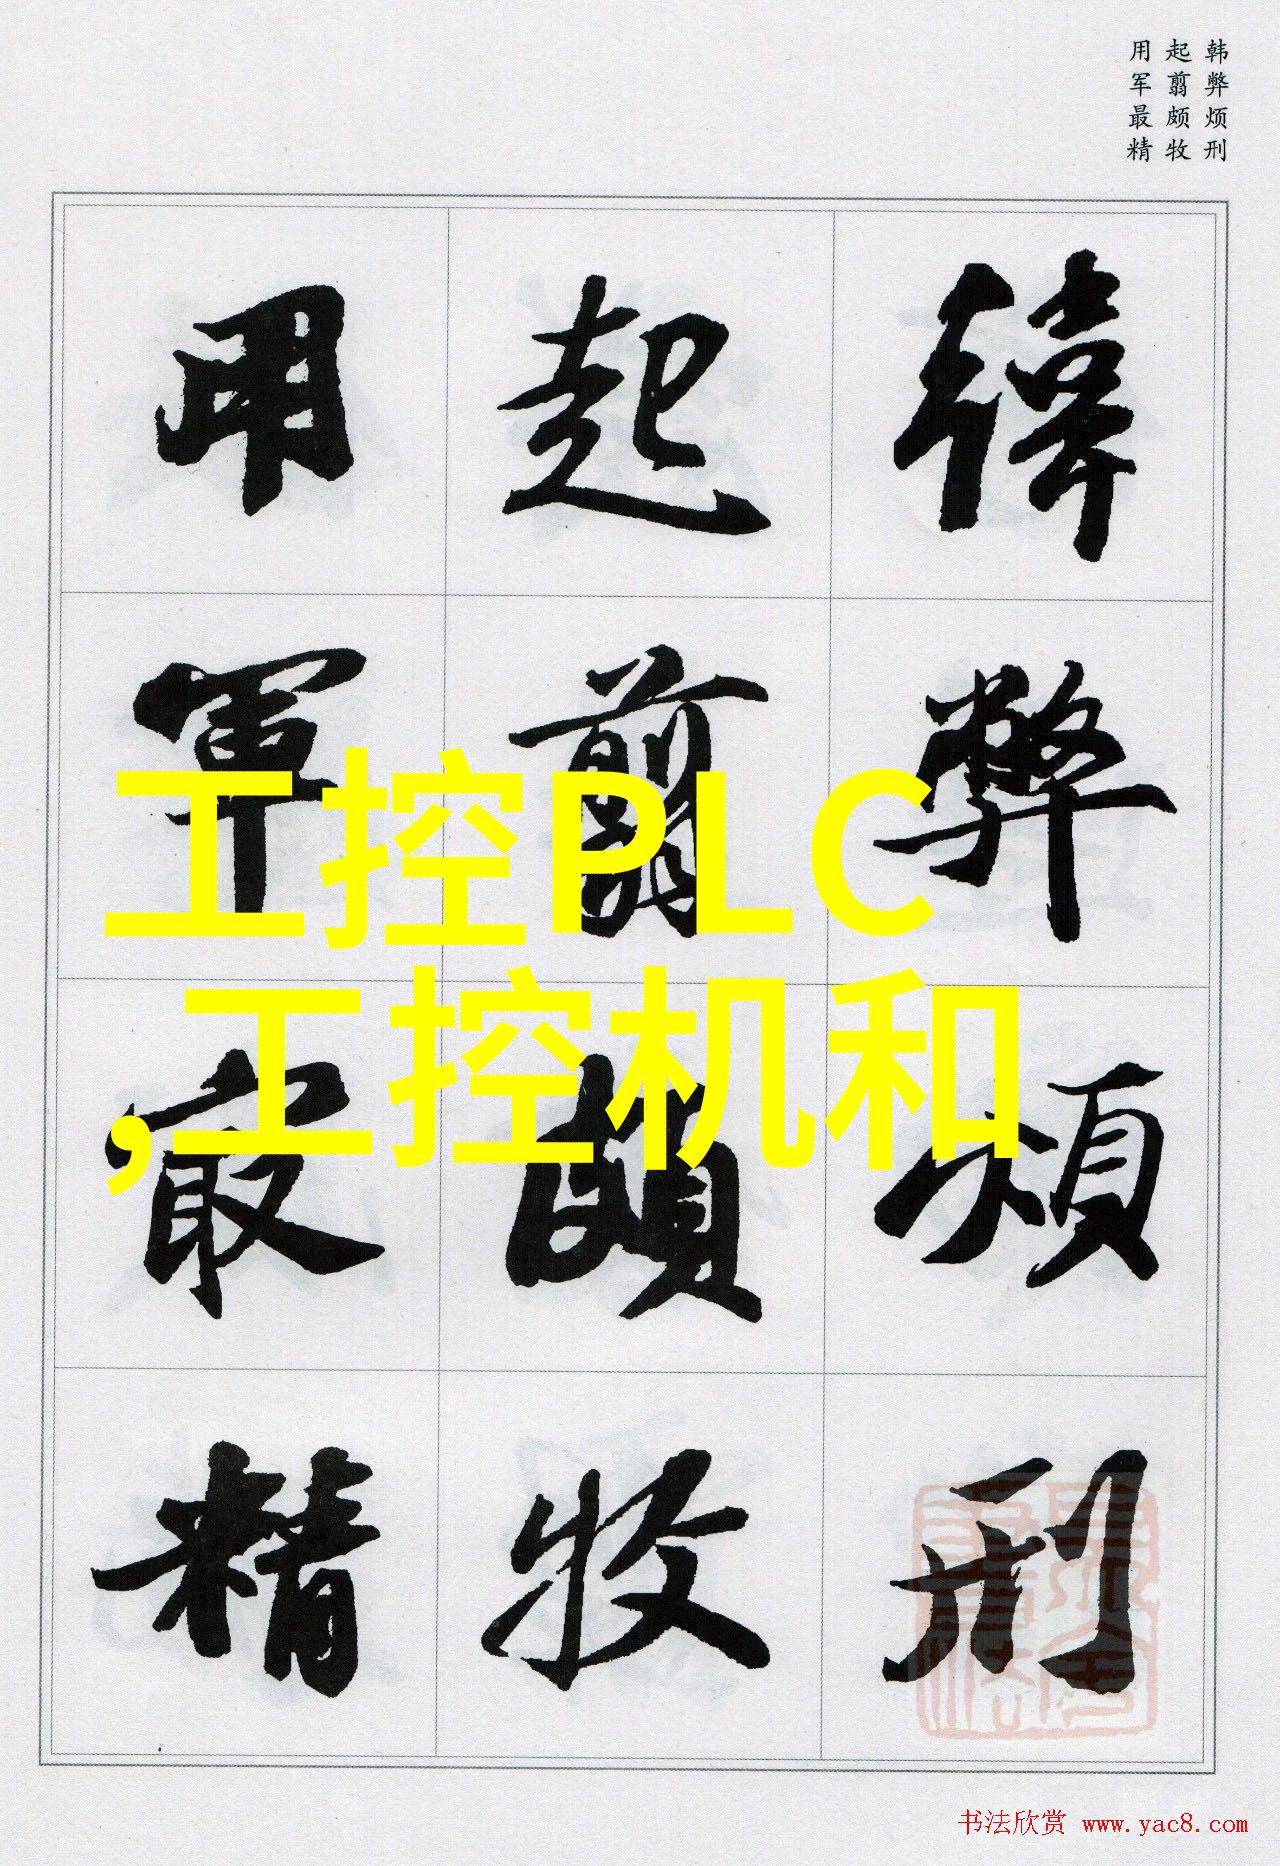 韩弊烦刑
起翦颇牧
用军最精
韓弊煩刑
起翦頗牧
用軍最精
工控PLC
,工控机和
书法欣赏 www.yac8.com